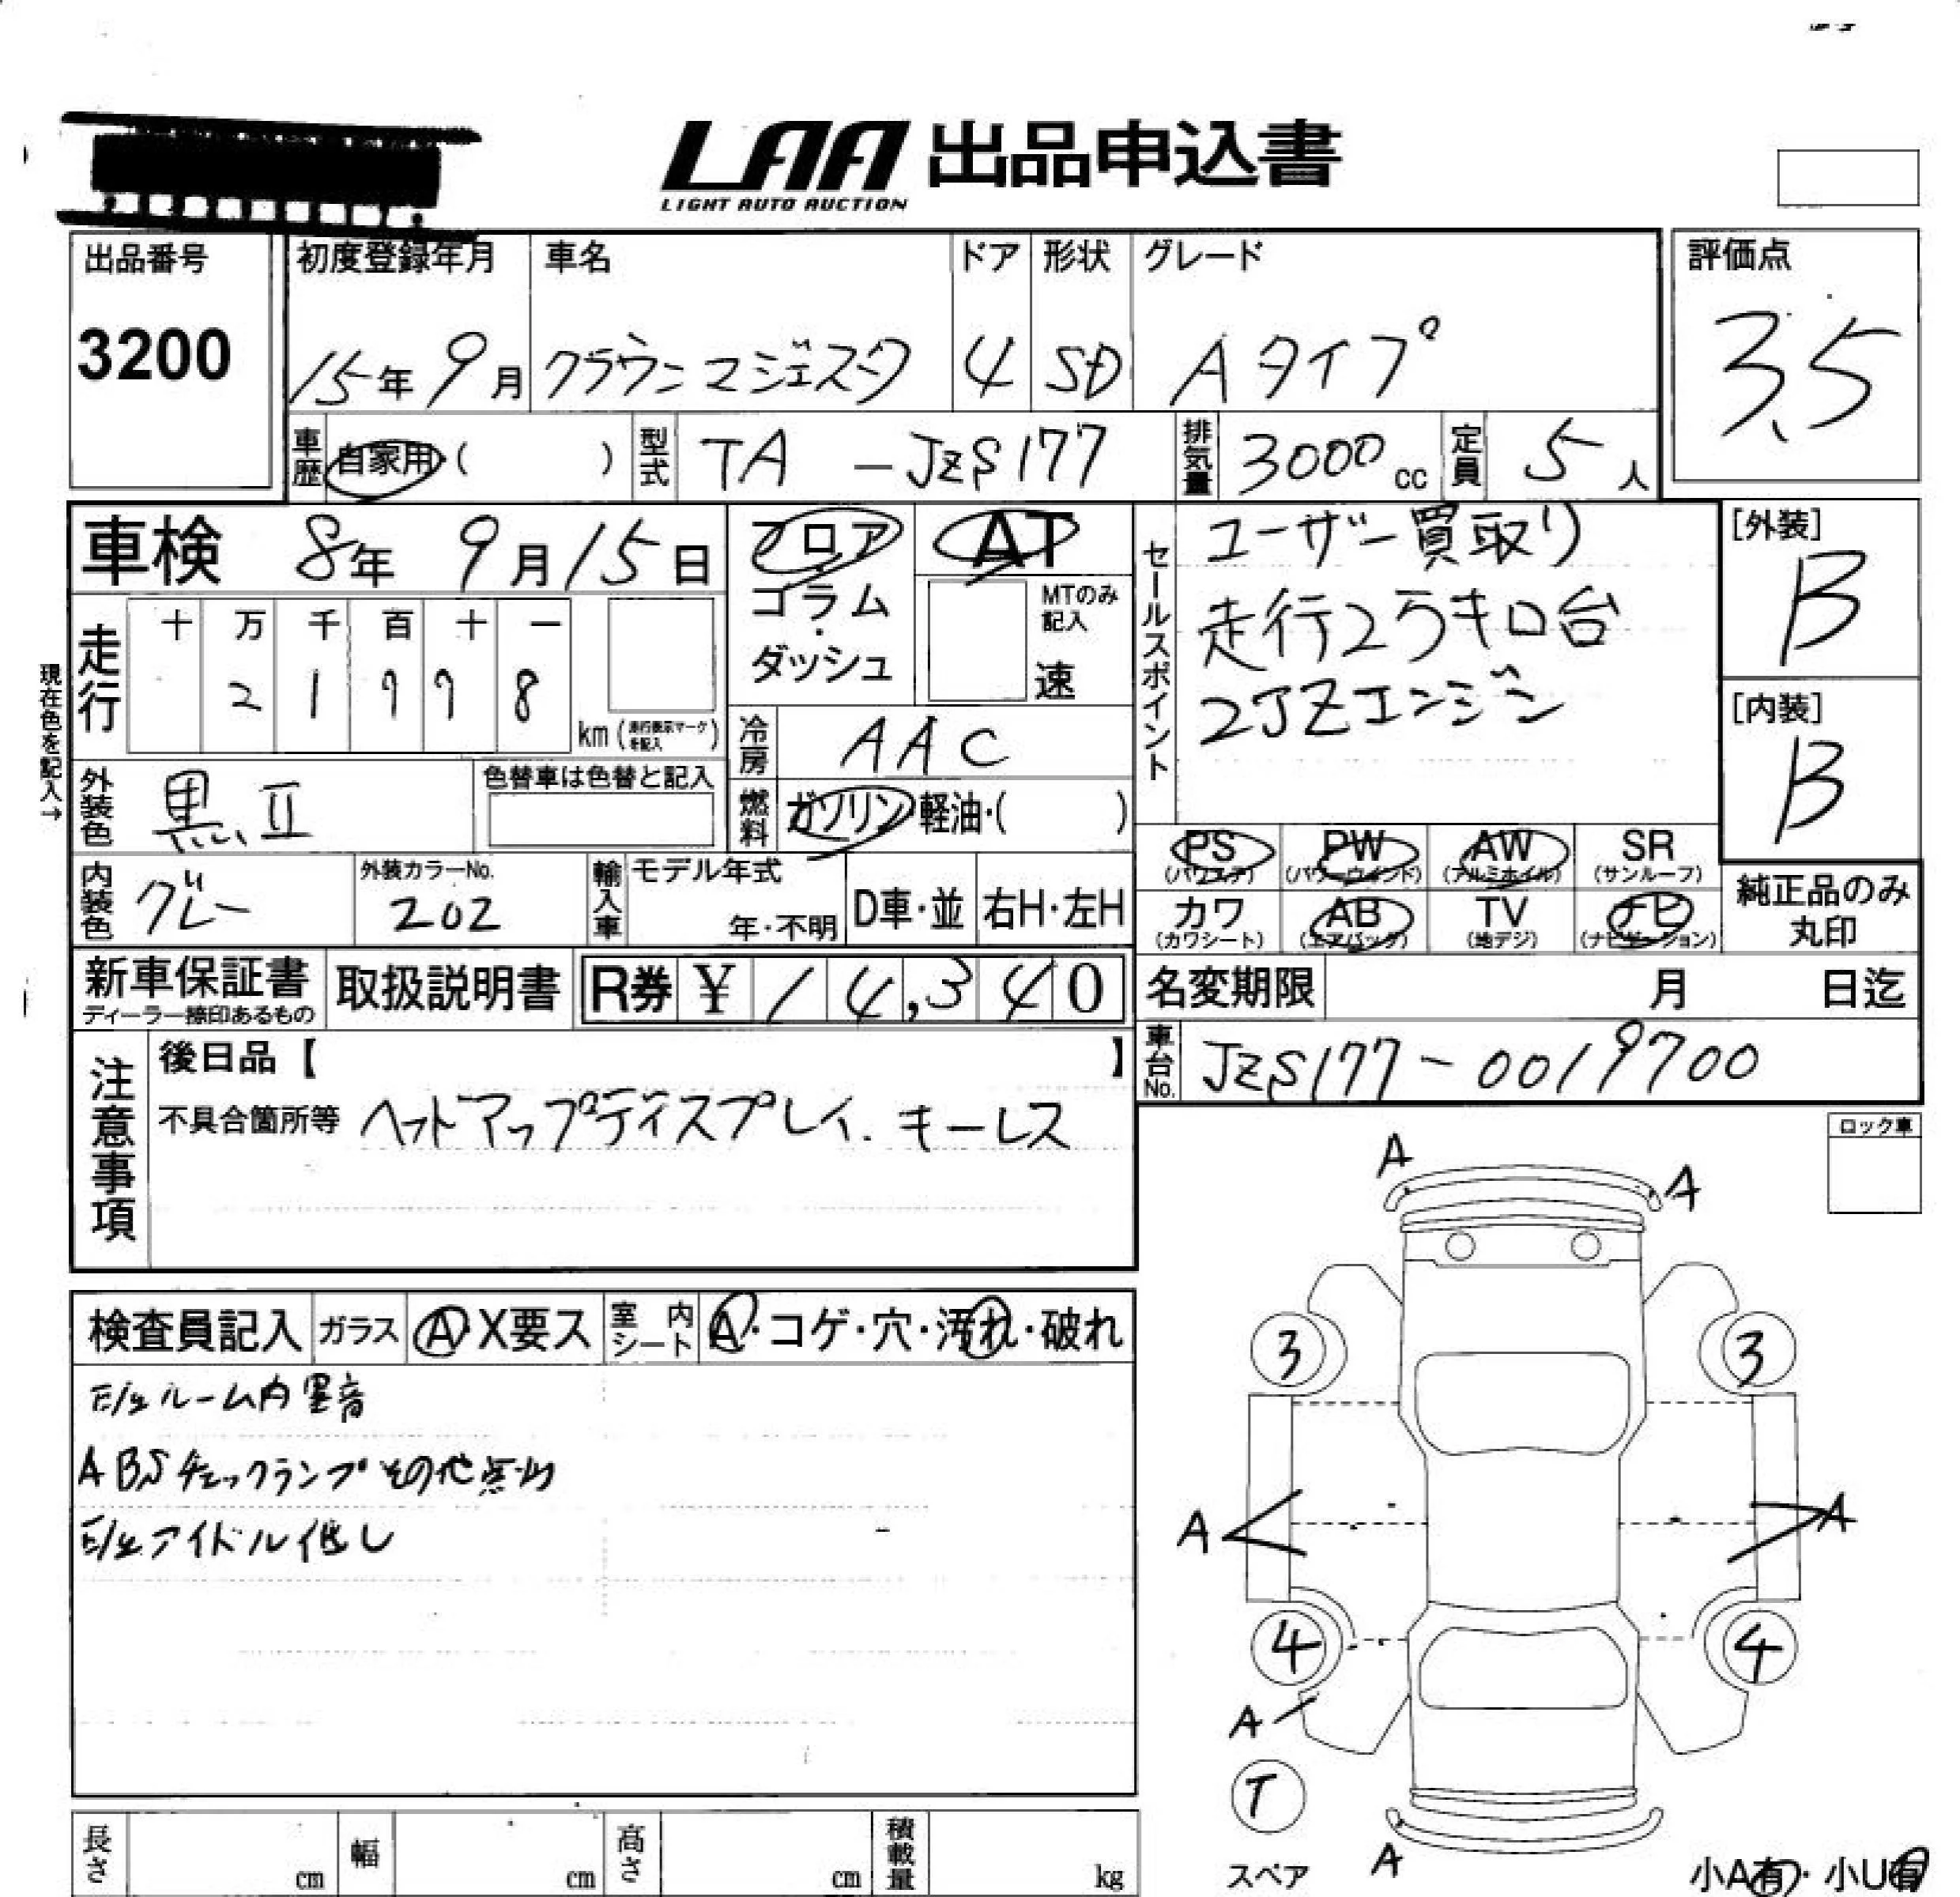 LAA 出品申込書
LIGHT AUTO AUCTION
出品番号
3200
初度登録年月
15年 9月
車名
クラウンマジェスタ
ドア
4
形状
SD
グレード
Aタイプ
評価点
3.5
車歴 自家用・( )
型式 TA-JZS177
排気量 3000cc
定員 5人
車検 8年 9月15日
フロア・
コラム・
ダッシュ
AT
MTのみ
記入
速
セールスポイント
ユーザー買取り
走行2万キロ台
2JZエンジン
[外装]
B
[内装]
B
現在色を記入→
走行
十 万 千 百 十 一
km(走行表示マークを記入)
冷房 AAC
燃料 ガソリン 軽油・( )
外装色 黒II
色替車は色替と記入
内装色 グレー
外装カラーNo.
202
輸入車
モデル年式
年・不明
D車・並
右H・左H
PS
(パワステ)
PW
(パワーウィンド)
AW
(アルミホイル)
SR
(サンルーフ)
カワ
(カワシート)
AB
(エアバッグ)
TV
(地デジ)
ナビ
(ナビゲーション)
純正品のみ
丸印
新車保証書
ディーラー捺印あるもの
取扱説明書
R券 ¥ 14,340
名変期限 月 日迄
車台No. JZS177-0019700
注意事項
後日品【 】
不具合箇所等 ヘッドアップディスプレイ. キーレス
ロック車
検査員記入
ガラス A・X要ス
室内シート A・コゲ・穴・汚れ・破れ
E/gルーム内異音
ABSチェックランプその他点灯
E/gアイドル低し
A
A
3
3
A
A
4
4
A
T
スペア
A
小A有・小U有
長さ cm
幅 cm
高さ cm
積載量 kg